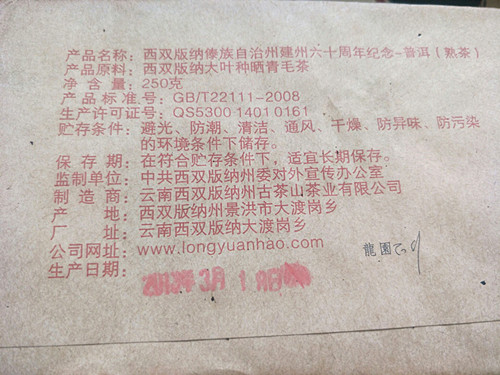 产品名称：西双版纳傣族自治州建州六十周年纪念-普洱（熟茶）
产品原料：西双版纳大叶种晒青毛茶
净含量：250克
产品标准号：GB/T22111-2008
生产许可证号：QS5300 1401 0161
贮存条件：避光、防潮、清洁、通风、干燥、防异味、防污染
的环境条件下储存。
保存期：在符合贮存条件下，适宜长期保存。
监制单位：中共西双版纳州委对外宣传办公室
制造商：云南西双版纳州古茶山茶业有限公司
产地：西双版纳州景洪市大渡岗乡
厂址：云南西双版纳大渡岗乡
公司网址：www.longyuanhao.com
龍園
生产日期：2013年3月1日